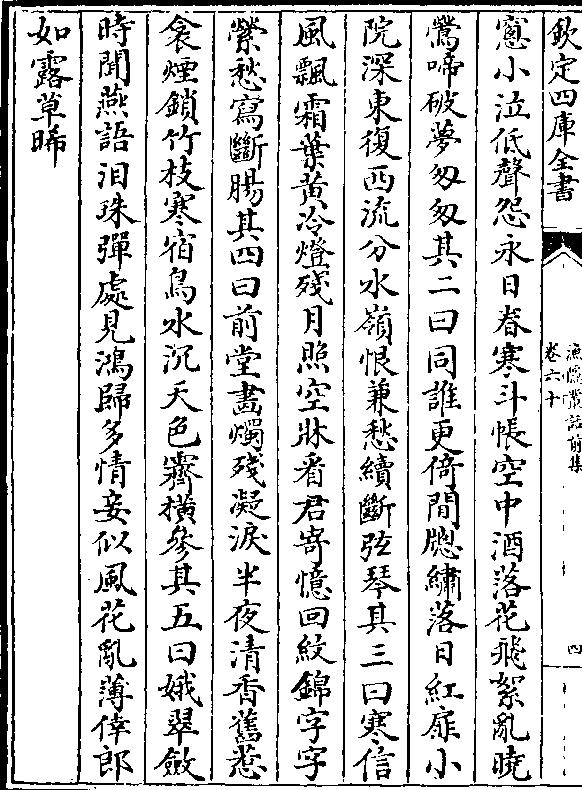 欽定四庫全書
漁隱叢話前集
卷六十
四
窻小泣低聲怨永日春寒斗帳空中酒落花飛絮亂曉
鶯啼破夢匆匆其二曰同誰更倚閒牕繡落日紅扉小
院深東復西流分水嶺恨兼愁續斷弦琴其三曰寒信
風飄霜葉黄冷燈殘月照空牀看君寄憶回紋錦字字
縈愁寫斷腸其四曰前堂畵燭殘凝淚半夜清香舊惹
衾煙鎖竹枝寒宿鳥水沉天色霽橫參其五曰娥翠斂
時聞燕語淚珠彈處見鴻歸多情妾似風花亂薄倖郎
如露草晞